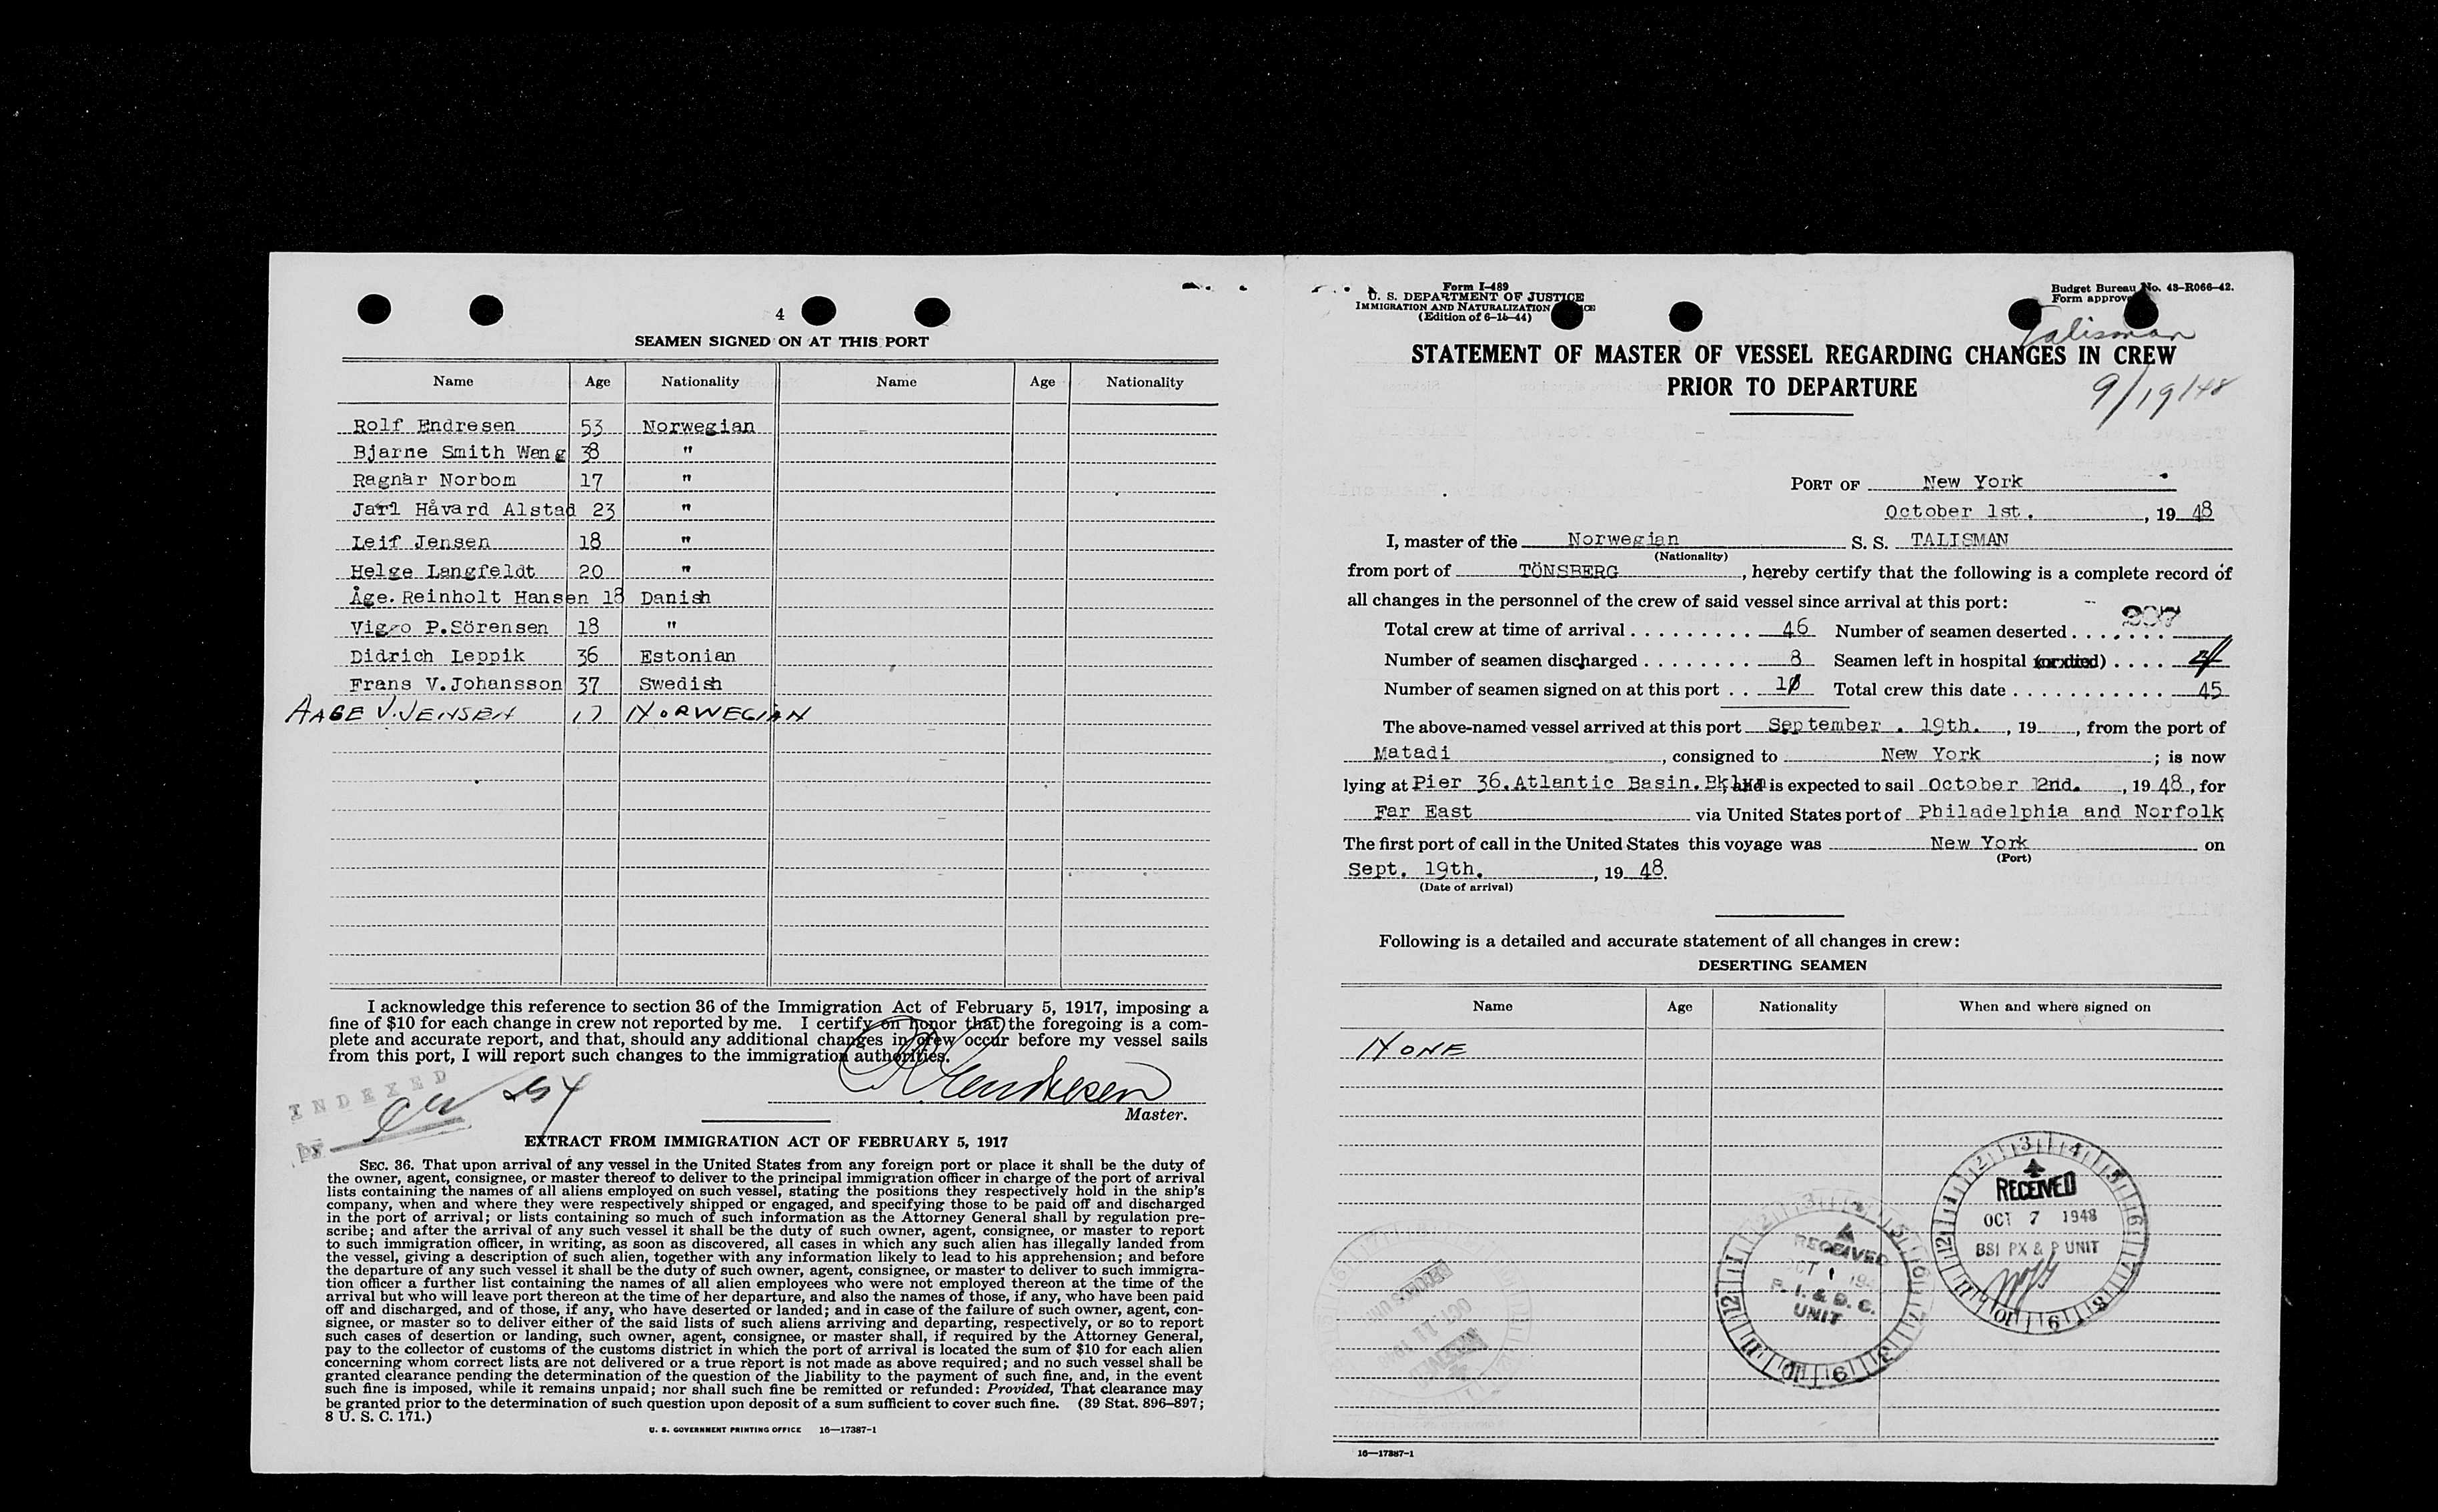 4
SEAMEN SIGNED ON AT THIS PORT
Name Age Nationality Name Age Nationality
Rolf Endresen 53 Norwegian
Bjarne Smith Wang 38 "
Ragnar Norbom 17 "
Jarl Håvard Alstad 23 "
Leif Jensen 18 "
Helge Langfeldt 20 "
Åge. Reinholt Hansen 18 Danish
Viggo P.Sörensen 18 "
Didrich Leppik 36 Estonian
Frans V.Johansson 37 Swedish
AAGE V. JENSEN 17 NORWEGIAN
I acknowledge this reference to section 36 of the Immigration Act of February 5, 1917, imposing a
fine of $10 for each change in crew not reported by me. I certify on honor that the foregoing is a com-
plete and accurate report, and that, should any additional changes in crew occur before my vessel sails
from this port, I will report such changes to the immigration authorities.
INDEXED
by
Master.
EXTRACT FROM IMMIGRATION ACT OF FEBRUARY 5, 1917
SEC. 36. That upon arrival of any vessel in the United States from any foreign port or place it shall be the duty of
the owner, agent, consignee, or master thereof to deliver to the principal immigration officer in charge of the port of arrival
lists containing the names of all aliens employed on such vessel, stating the positions they respectively hold in the ship's
company, when and where they were respectively shipped or engaged, and specifying those to be paid off and discharged
in the port of arrival; or lists containing so much of such information as the Attorney General shall by regulation pre-
scribe; and after the arrival of any such vessel it shall be the duty of such owner, agent, consignee, or master to report
to such immigration officer, in writing, as soon as discovered, all cases in which any such alien has illegally landed from
the vessel, giving a description of such alien, together with any information likely to lead to his apprehension; and before
the departure of any such vessel it shall be the duty of such owner, agent, consignee, or master to deliver to such immigra-
tion officer a further list containing the names of all alien employees who were not employed thereon at the time of the
arrival but who will leave port thereon at the time of her departure, and also the names of those, if any, who have been paid
off and discharged, and of those, if any, who have deserted or landed; and in case of the failure of such owner, agent, con-
signee, or master so to deliver either of the said lists of such aliens arriving and departing, respectively, or so to report
such cases of desertion or landing, such owner, agent, consignee, or master shall, if required by the Attorney General,
pay to the collector of customs of the customs district in which the port of arrival is located the sum of $10 for each alien
concerning whom correct lists are not delivered or a true report is not made as above required; and no such vessel shall be
granted clearance pending the determination of the question of the liability to the payment of such fine, and, in the event
such fine is imposed, while it remains unpaid; nor shall such fine be remitted or refunded: Provided, That clearance may
be granted prior to the determination of such question upon deposit of a sum sufficient to cover such fine. (39 Stat. 896–897;
8 U. S. C. 171.)
U. S. GOVERNMENT PRINTING OFFICE 16—17387-1
Form I-489
U. S. DEPARTMENT OF JUSTICE
IMMIGRATION AND NATURALIZATION
(Edition of 6-15-44)
Budget Bureau No. 43-R066-42.
Form approve
Talisman
STATEMENT OF MASTER OF VESSEL REGARDING CHANGES IN CREW
PRIOR TO DEPARTURE
9/19/48
PORT OF New York
October 1st. , 19 48
I, master of the Norwegian S. S. TALISMAN
(Nationality)
from port of TÖNSBERG , hereby certify that the following is a complete record of
all changes in the personnel of the crew of said vessel since arrival at this port:
Total crew at time of arrival 46 Number of seamen deserted
Number of seamen discharged 8 Seamen left in hospital (or died) 4
Number of seamen signed on at this port Total crew this date 45
The above-named vessel arrived at this port September . 19th. , 19 , from the port of
Matadi , consigned to New York ; is now
lying at Pier 36.Atlantic Basin.Bklyn and is expected to sail October 2nd. , 19 48 , for
Far East via United States port of Philadelphia and Norfolk
The first port of call in the United States this voyage was New York on
(Port)
Sept. 19th. , 19 48.
(Date of arrival)
Following is a detailed and accurate statement of all changes in crew:
DESERTING SEAMEN
Name Age Nationality When and where signed on
NONE
RECEIVED
OCT 7 1948
BSI PX & P UNIT
RECEIVED
OCT 1 194
P. I. & D. C.
UNIT
OCT 11
16—17387-1